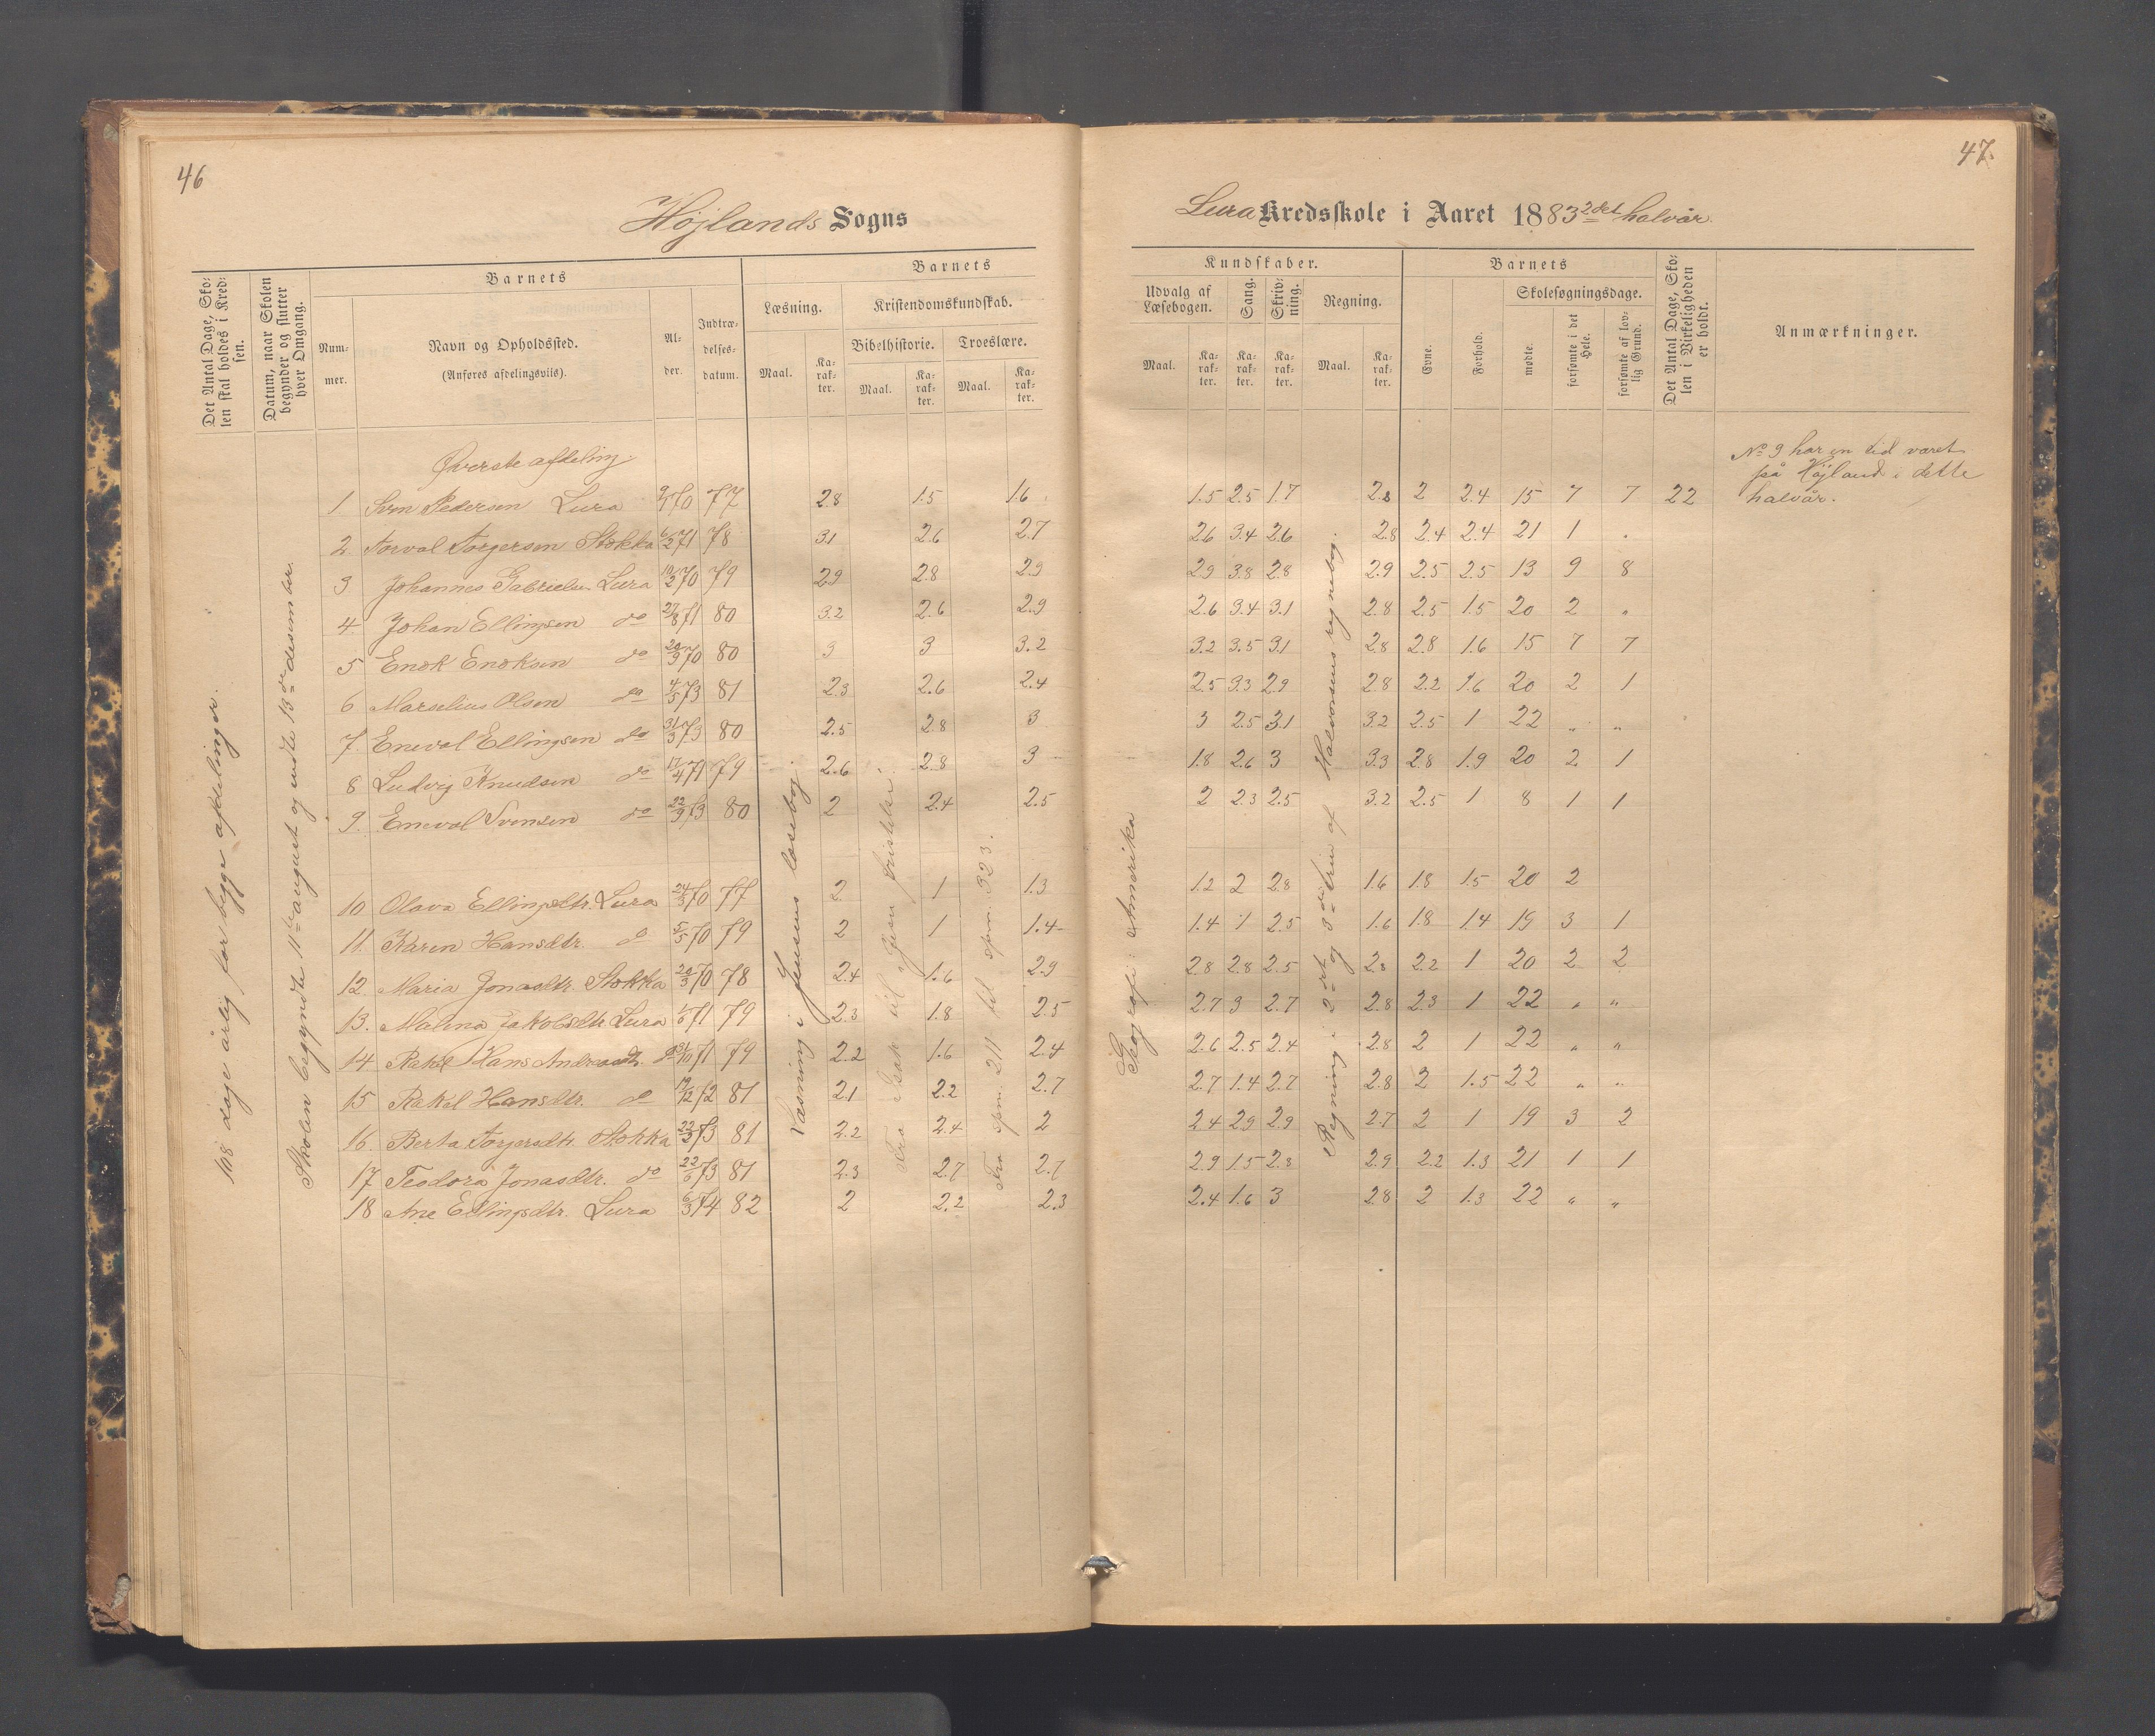 46
Højlands Sogns
Det Antal Dage, Sko-
len skal holdes i Kred-
sen.
Datum, naar Skolen
begynder og slutter
hver Omgang.
Barnets
Num-
mer.
Navn og Opholdssted.
(Anføres afdelingsviis).
Al-
der.
Indtræ-
delses-
datum.
Barnets
Læsning.
Maal.
Ka-
rak-
ter.
Kristendomskundskab.
Bibelhistorie.
Maal.
Ka-
rak-
ter.
Troeslære.
Maal.
Ka-
rak-
ter.
108 dage årlig for begge afdelinger.
Skolen begyndte 11te august og endte 13de desember.
Læsning i Jensens læsebog.
Fra Isak til
Fra spm. 211 til spm. 323.
Øverste afdeling.
1. Sven Pedersen Lura 9/1 70 77 2.8 1.5 1.6
2 Torval Torgersen Stokka 6/2 71 78 3.1 2.6 2.7
3 Johannes Gabrielsen Lura 10/3 70 79 2.9 2.8 2.9
4. Johan Ellingsen do 27/8 71 80 3.2 2.6 2.9
5 Enok Enoksen do 20/9 70 80 3 3 3.2
6 Marselius Olsen do 4/5 73 81 2.3 2.6 2.4
7. Eneval Ellingsen do 31/3 73 80 2.5 2.8 3
8 Ludvig Knudsen do 17/4 71 79 2.6 2.8 3
9. Eneval Svensen do 22/9 73 80 2 2.4 2.5
10 Olava Ellingsdtr. Lura 24/3 70 77 2 1 1.3
11. Karen Hansdtr. do 5/5 70 79 2 1 1.4
12. Maria Jonasdtr. Stokka 20/3 70 78 2.4 1.6 2.9
13. Malena Jakobsdtr. Lura 71 79 2.3 1.8 2.5
14 Rakel Hans Andreasdt. do 31/10 71 79 2.2 1.6 2.4
15 Rakel Hansdtr. do 19/12 72 81 2.1 2.2 2.7
16. Berta Torgersdtr Stokka 22/3 73 81 2.2 2.4 2
17 Teodora Jonasdtr. do 73 81 2.3 2.7 2.7
18 Ane Ellingsdtr. Lura 6/3 74 82 2 2.2 2.3
47.
Lura Kredsskole i Aaret 1883 2det halvår.
Kundskaber.
Udvalg af
Læsebogen.
Maal.
Ka-
rak-
ter.
Sang.
Ka-
rak-
ter.
Skriv-
ning.
Ka-
rak-
ter.
Regning.
Maal.
Ka-
rak-
ter.
Barnets
Evne.
Forhold.
Skolesøgningsdage.
mødte.
forsømte i det
Hele.
forsømte af lov-
lig Grund.
Det Antal Dage, Sko-
len i Virkeligheden
er holdt.
Anmærkninger.
Geografi: Amerika
Regning i 2det og 3die trin af Halvorsens regnebog.
No 9 har en tid været
på Højland i dette
halvår.
1.5 2.5 1.7 2.8 2 2.4 15 7 7 22
2.6 3.4 2.6 2.8 2.4 2.4 21 1 "
2.9 3.8 2.8 2.9 2.5 2.5 13 9 8
2.6 3.4 3.1 2.8 2.5 1.5 20 2 "
3.2 3.5 3.1 2.8 2.8 1.6 15 7 7
2.5 3.3 2.9 2.8 2.2 1.6 20 2 1
3 2.5 3.1 3.2 2.5 1 22 " "
1.8 2.6 3 3.3 2.8 1.9 20 2 1
2 2.3 2.5 3.2 2.5 1 8 1 1
1.2 2 2.8 1.6 1.8 1.5 20 2
1.4 1 2.5 1.6 1.8 1.4 19 3 1
2.8 2.8 2.5 2.8 2.2 1 20 2 2
2.7 3 2.7 2.8 2.3 1 22 " "
2.6 2.5 2.4 2.8 2 1 22 " "
2.7 1.4 2.7 2.8 2 1.5 22 " "
2.4 2.9 2.9 2.7 2 1 19 3 2
2.9 1.5 2.8 2.9 2.2 1.3 21 1 1
2.4 1.6 3 2.8 2 1.3 22 " "